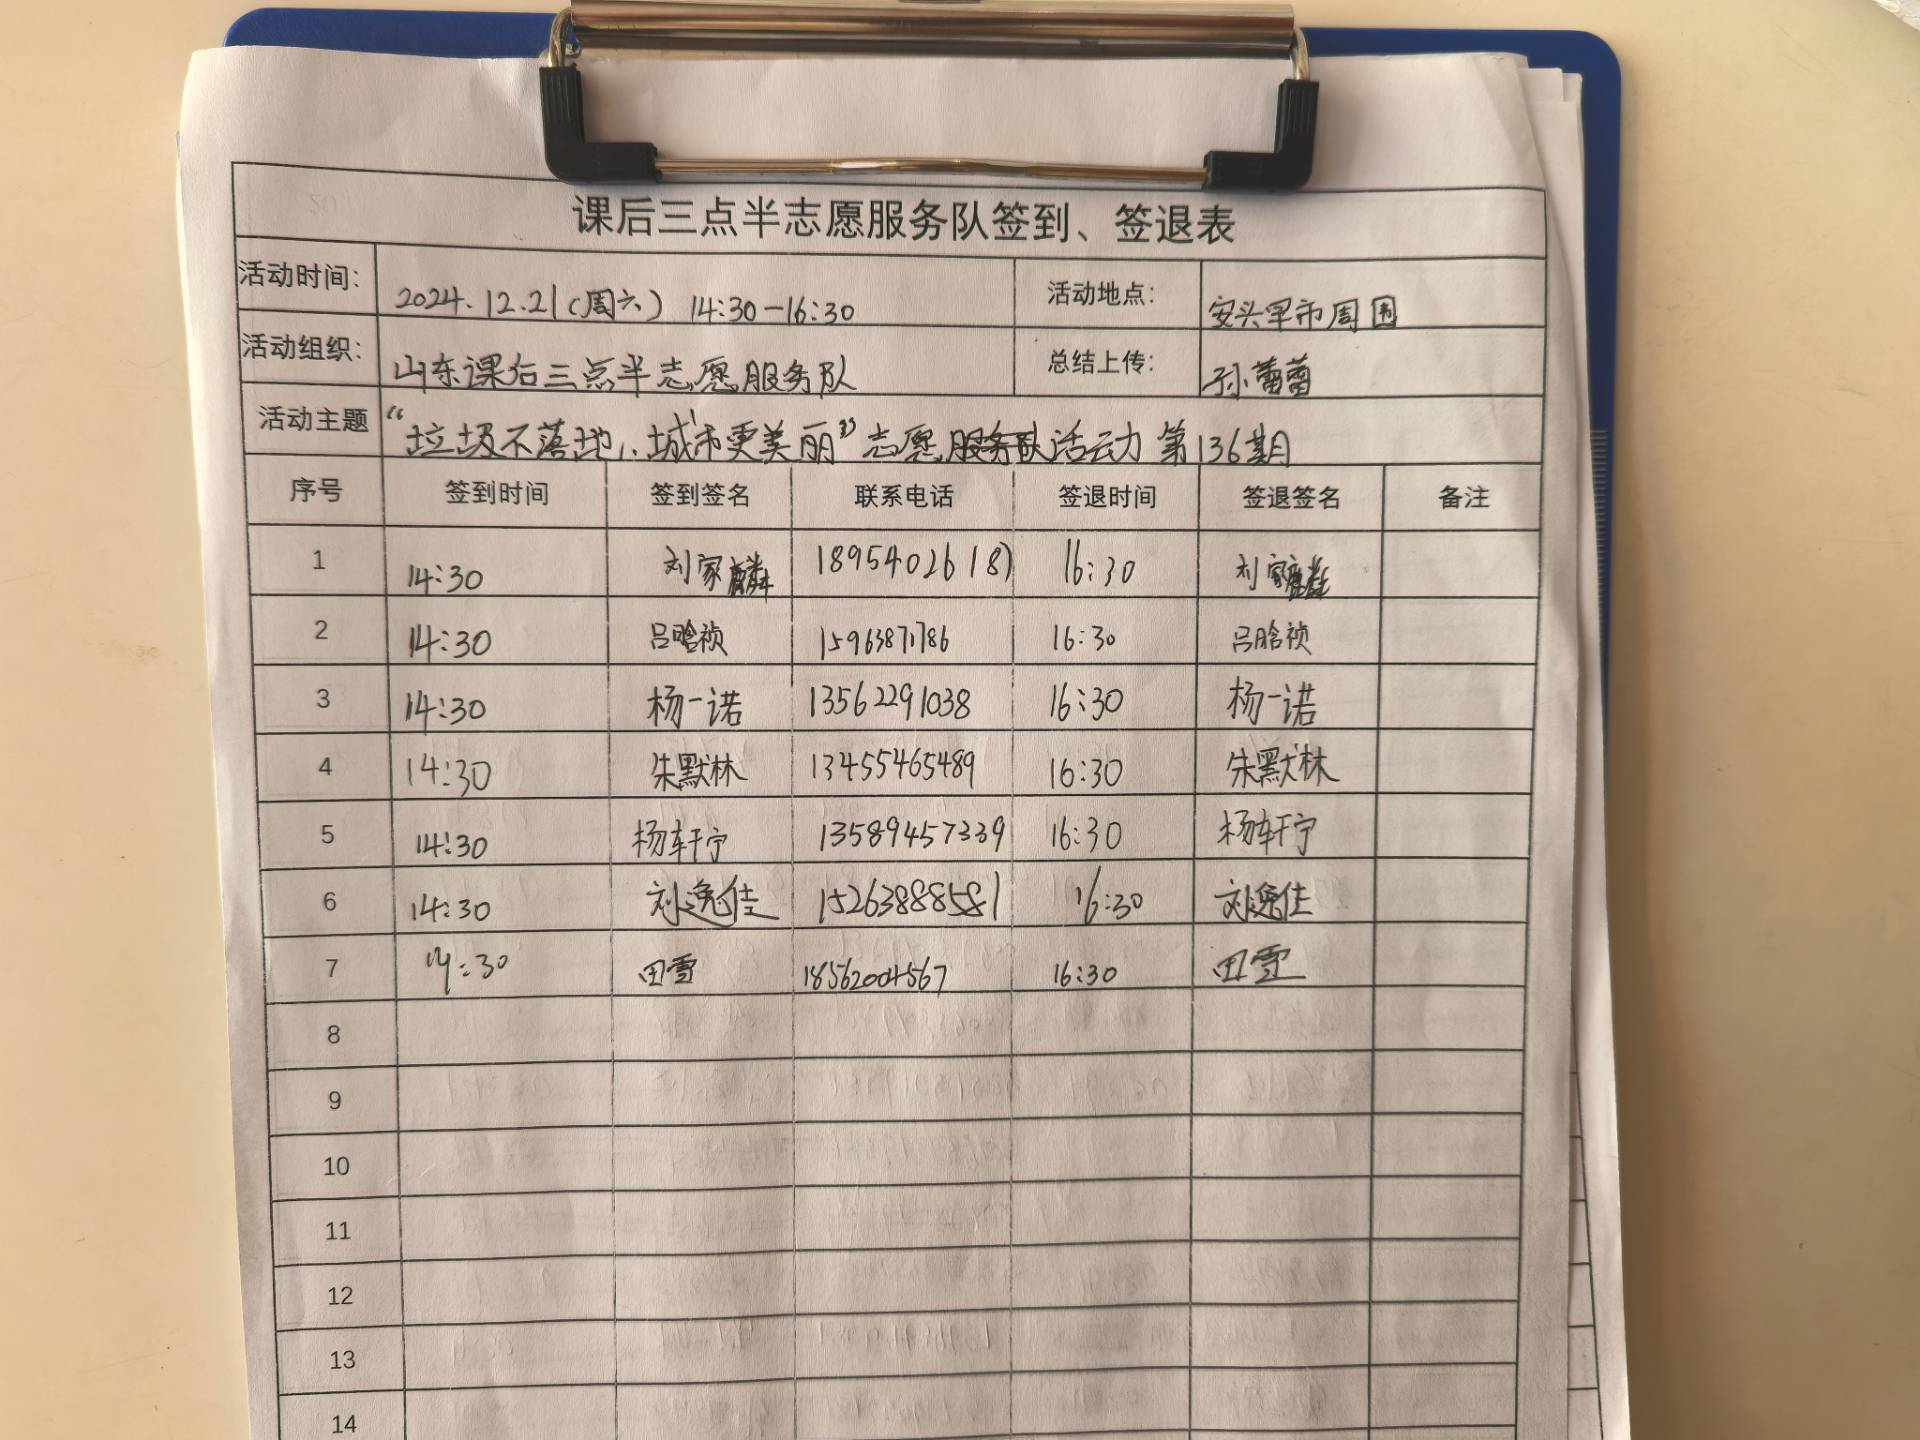 课后三点半志愿服务队签到、签退表
活动时间: 2024.12.21(周六) 14:30-16:30 活动地点: 安头早市周围
活动组织: 山东课后三点半志愿服务队 总结上传: 孙蕾蕾
活动主题 “垃圾不落地,城市更美丽”志愿服务队活动 第136期
序号 签到时间 签到签名 联系电话 签退时间 签退签名 备注
1 14:30 刘家麟 18954026187 16:30 刘家麟
2 14:30 吕晗祯 15963871786 16:30 吕晗祯
3 14:30 杨一诺 13562291038 16:30 杨一诺
4 14:30 朱默林 13455465489 16:30 朱默林
5 14:30 杨轩宁 13589457339 16:30 杨轩宁
6 14:30 刘逸佳 15263888581 16:30 刘逸佳
7 14:30 田雪 18562004567 16:30 田雪
8
9
10
11
12
13
14